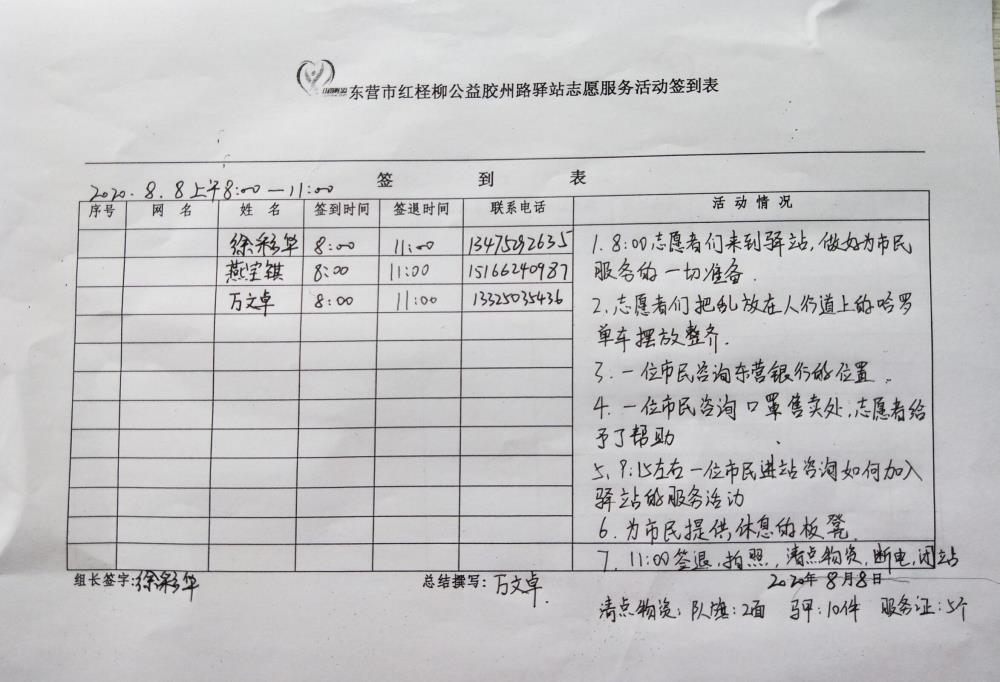 东营市红柽柳公益胶州路驿站志愿服务活动签到表
签 到 表
2020.8.8上午8:00—11:00
序号 网 名 姓 名 签到时间 签退时间 联系电话 活 动 情 况
徐彩华 8:00 11:00 13475292635
燕宝镇 8:00 11:00 15166240987
万文卓 8:00 11:00 13325035436
1.8:00志愿者们来到驿站,做好为市民
服务的一切准备.
2.志愿者们把乱放在人行道上的哈罗
单车摆放整齐.
3.一位市民咨询东营银行的位置.
4.一位市民咨询口罩售卖处,志愿者给
予了帮助
5.9:15左右一位市民进站咨询如何加入
驿站的服务活动
6.为市民提供休息的板凳.
7.11:00签退,拍照,清点物资,断电,闭站
组长签字:徐彩华 总结撰写:万文卓. 2020年8月8日
清点物资:队旗:2面 马甲:10件 服务证:5个